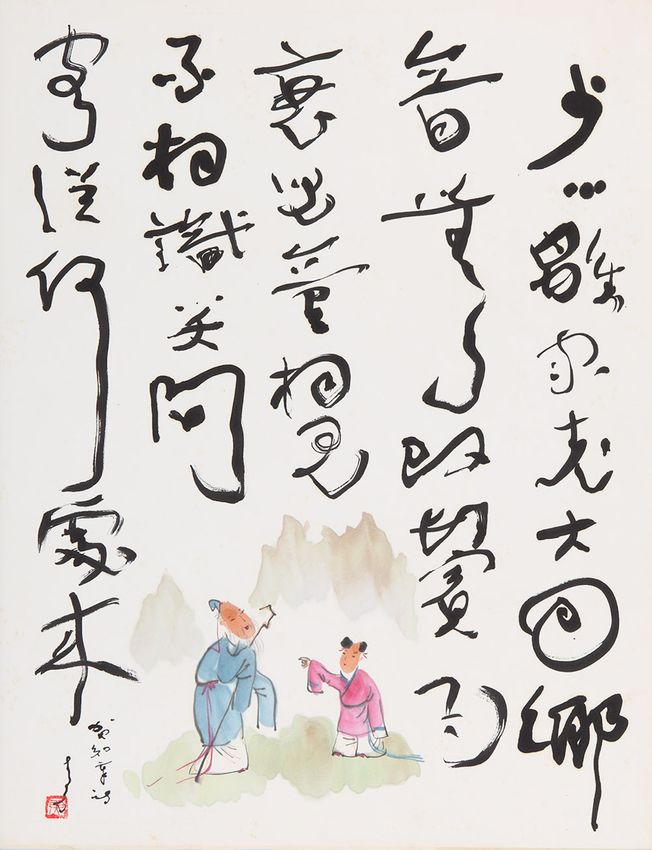 少小離家老大回鄉
音無改鬢毛
衰兒童相見
不相識笑問
客從何處來
賀知章詩